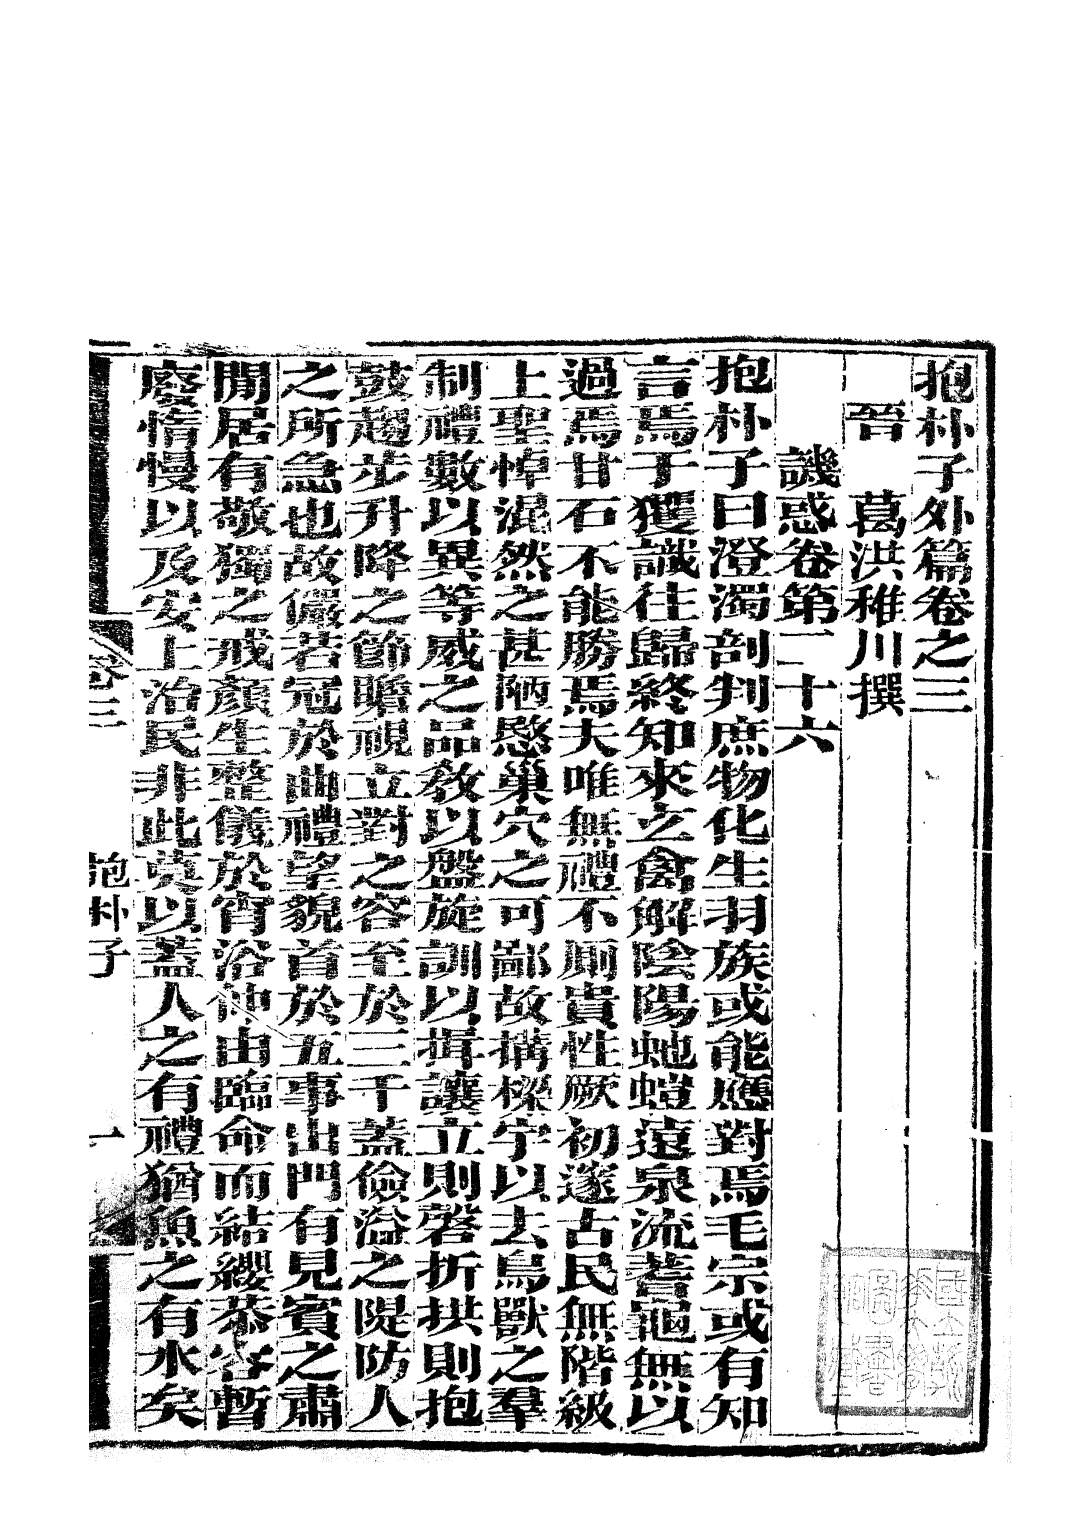 抱朴子外篇卷之三
晉　葛洪稚川撰
譏惑卷第二十六
抱朴子曰澄濁剖判庶物化生羽族或能應對焉毛宗或有知
言焉于玃識往歸終知來玄禽解陰陽虵螘遠泉流蓍龜無以
過焉甘石不能勝焉夫唯無禮不厠貴性厥初邃古民無階級
上聖悼混然之甚陋愍巢穴之可鄙故搆棟宇以去鳥獸之羣
制禮數以異等威之品敎以盤旋訓以揖讓立則磬折拱則抱
鼓趨步升降之節瞻視立對之容至於三千蓋儉溢之隄防人
之所急也故儼若冠於曲禮望貌首於五事出門有見賓之肅
閒居有敬獨之戒顏生整儀於宵浴仲由臨命而結纓恭容暫
廢惰慢以及安上治民非此莫以蓋人之有禮猶魚之有水矣
卷三
抱朴子
一